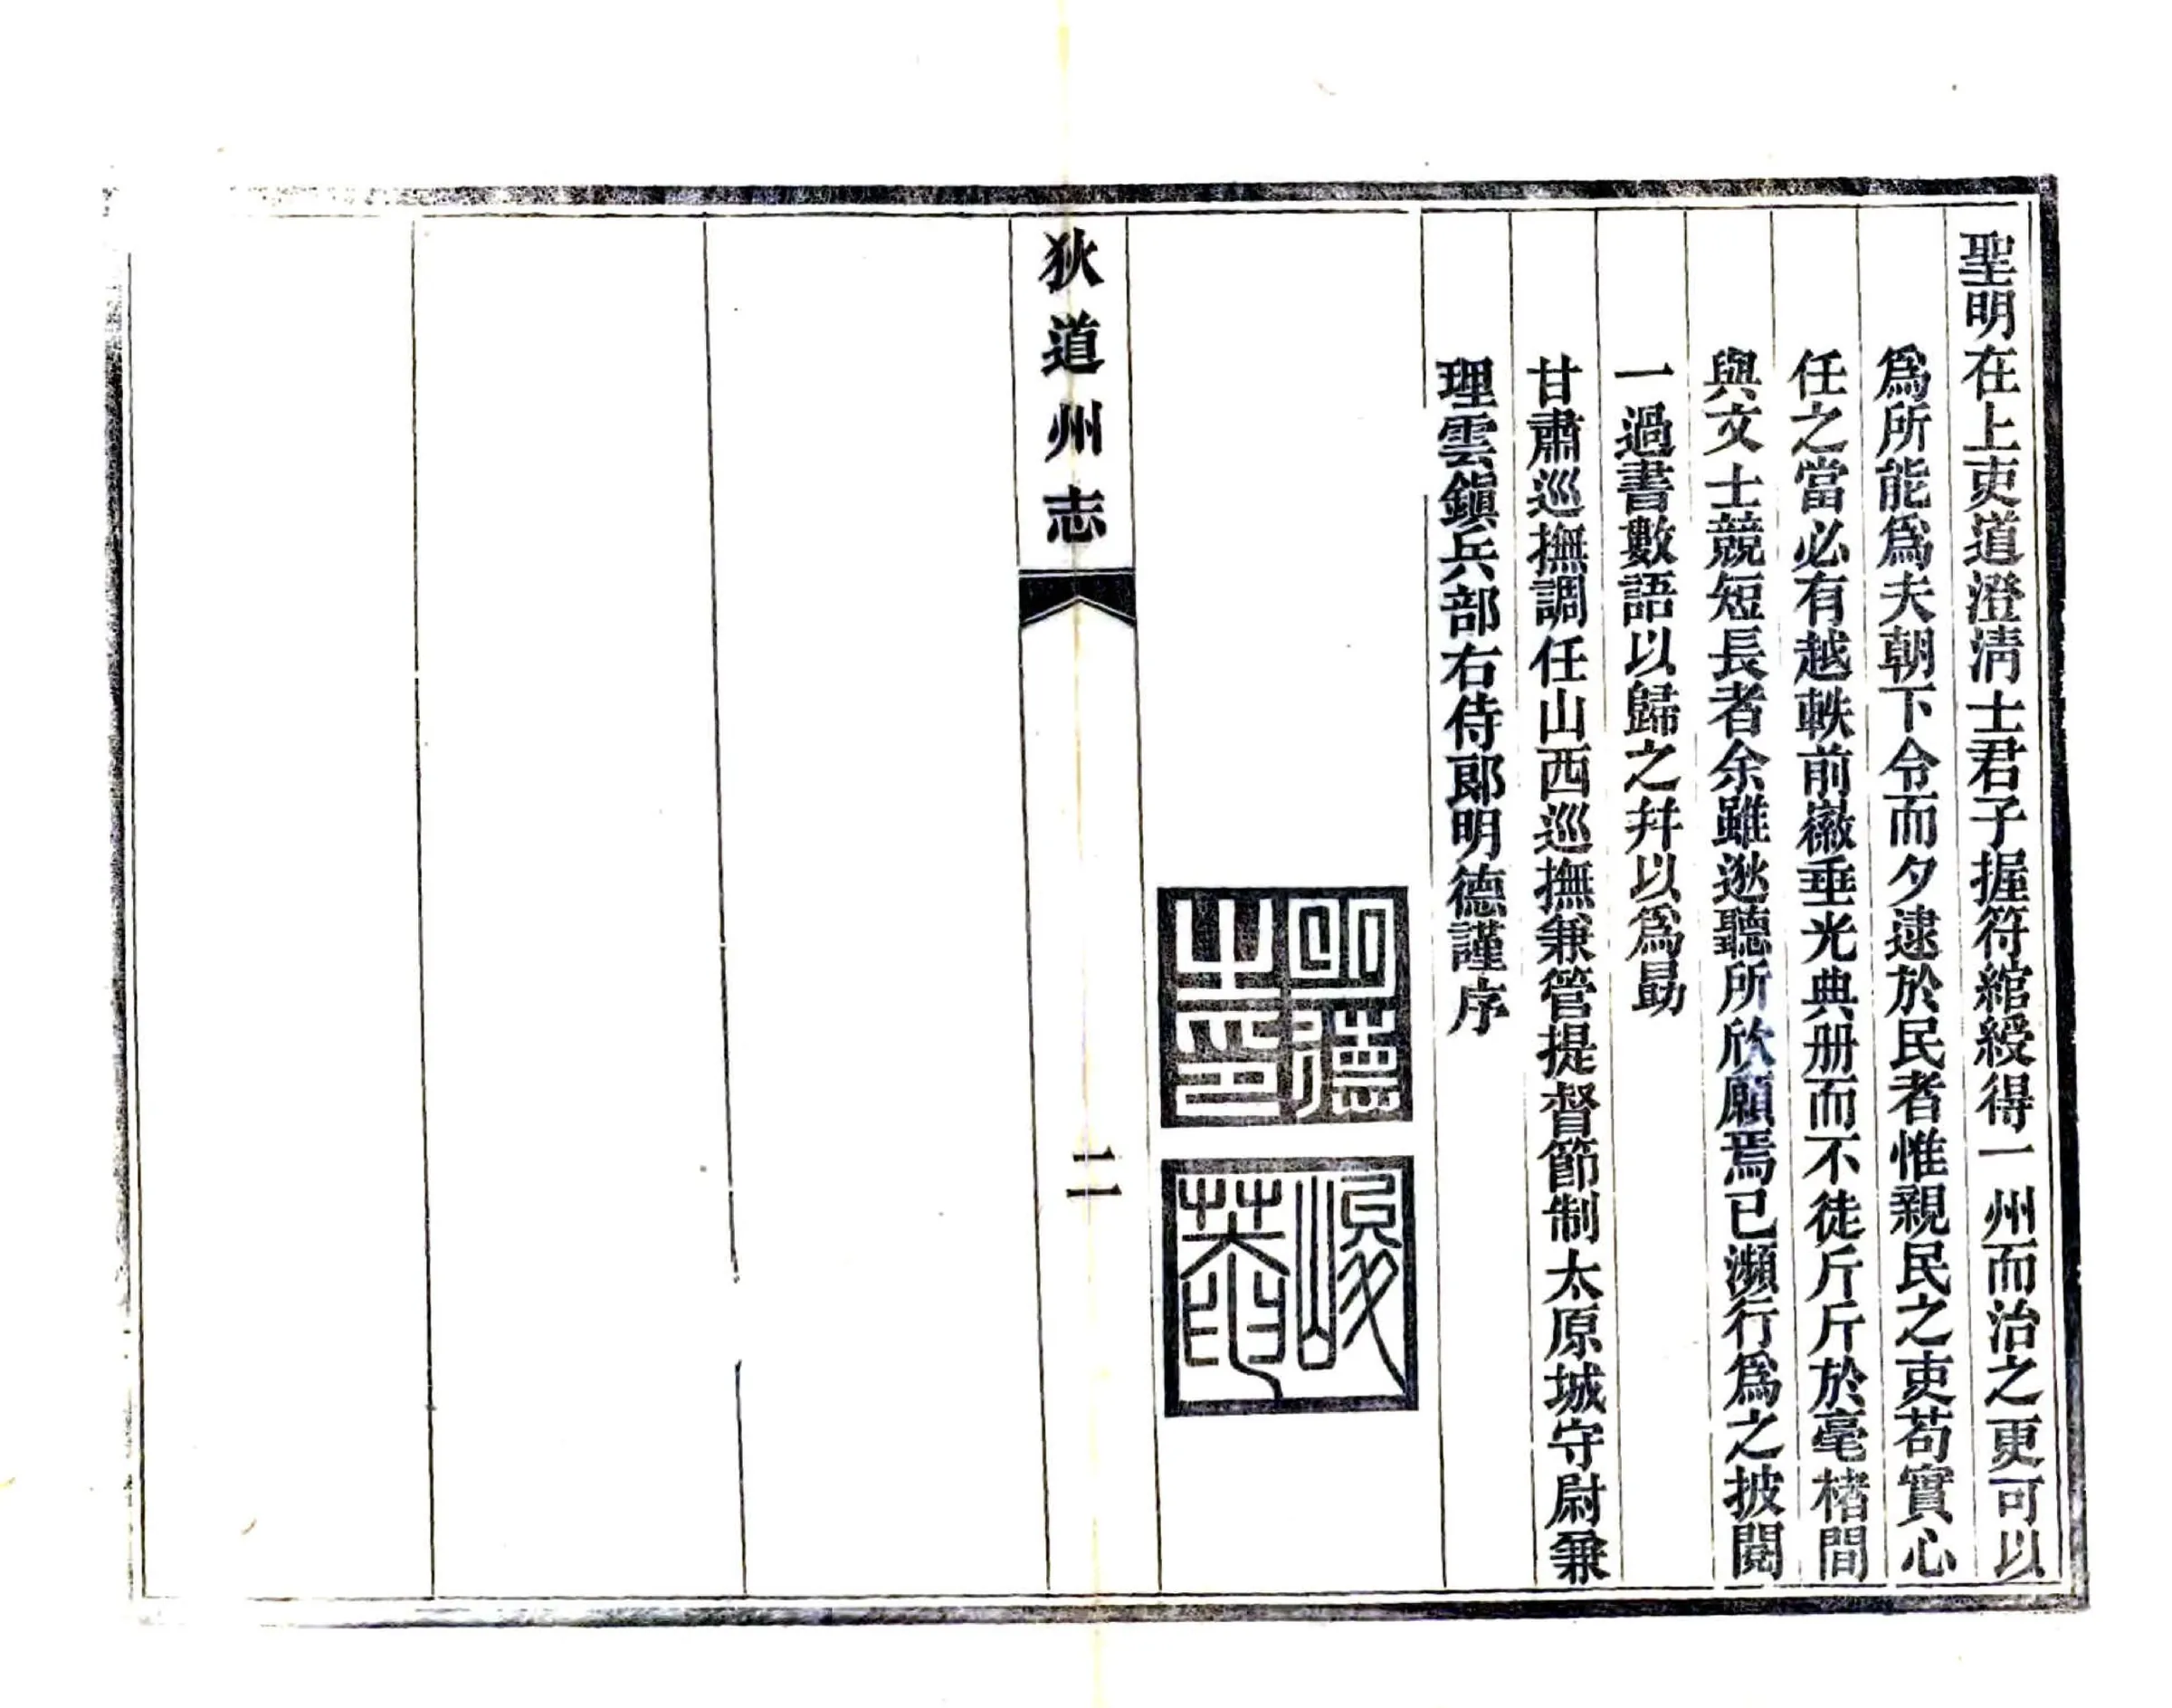 聖明在上吏道澄清士君子握符綰綬得一州而治之更可以
爲所能爲夫朝下令而夕逮於民者惟親民之吏苟實心
任之當必有越軼前徽垂光典册而不徒斤斤於毫楮間
與文士競短長者余雖逖聽所欣願焉已瀕行爲之披閱
一過書數語以歸之幷以爲勗
甘肅巡撫調任山西巡撫兼管提督節制太原城守尉兼
理雲鎭兵部右侍郎明德謹序
明德之印
峻菴
狄道州志
二